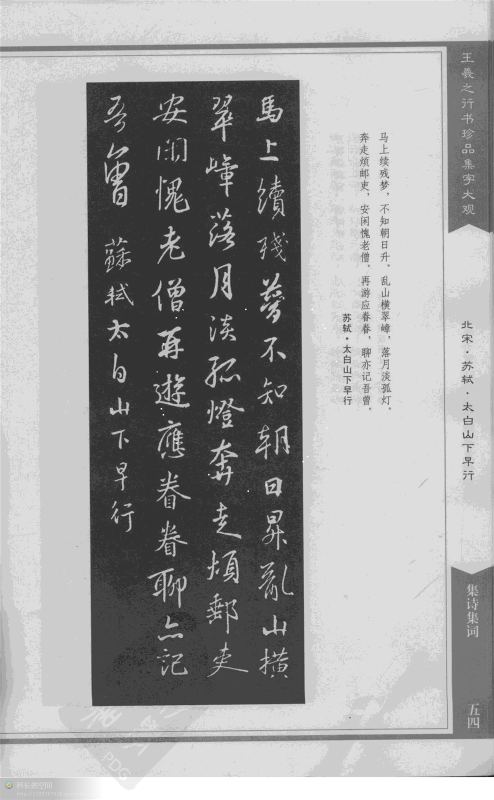 王羲之行书珍品集字大观
北宋·苏轼·太白山下早行
集诗集词
五四
马上续残梦，不知朝日升。乱山横翠嶂，落月淡孤灯。
奔走烦邮吏，安闲愧老僧。再游应眷眷，聊亦记吾曾。
苏轼·太白山下早行
馬上續殘夢不知朝日昇亂山横
翠嶂落月淡孤燈奔走煩郵吏
安閑愧老僧再遊應眷眷聊亦記
吾曾 蘇軾太白山下早行
PDG